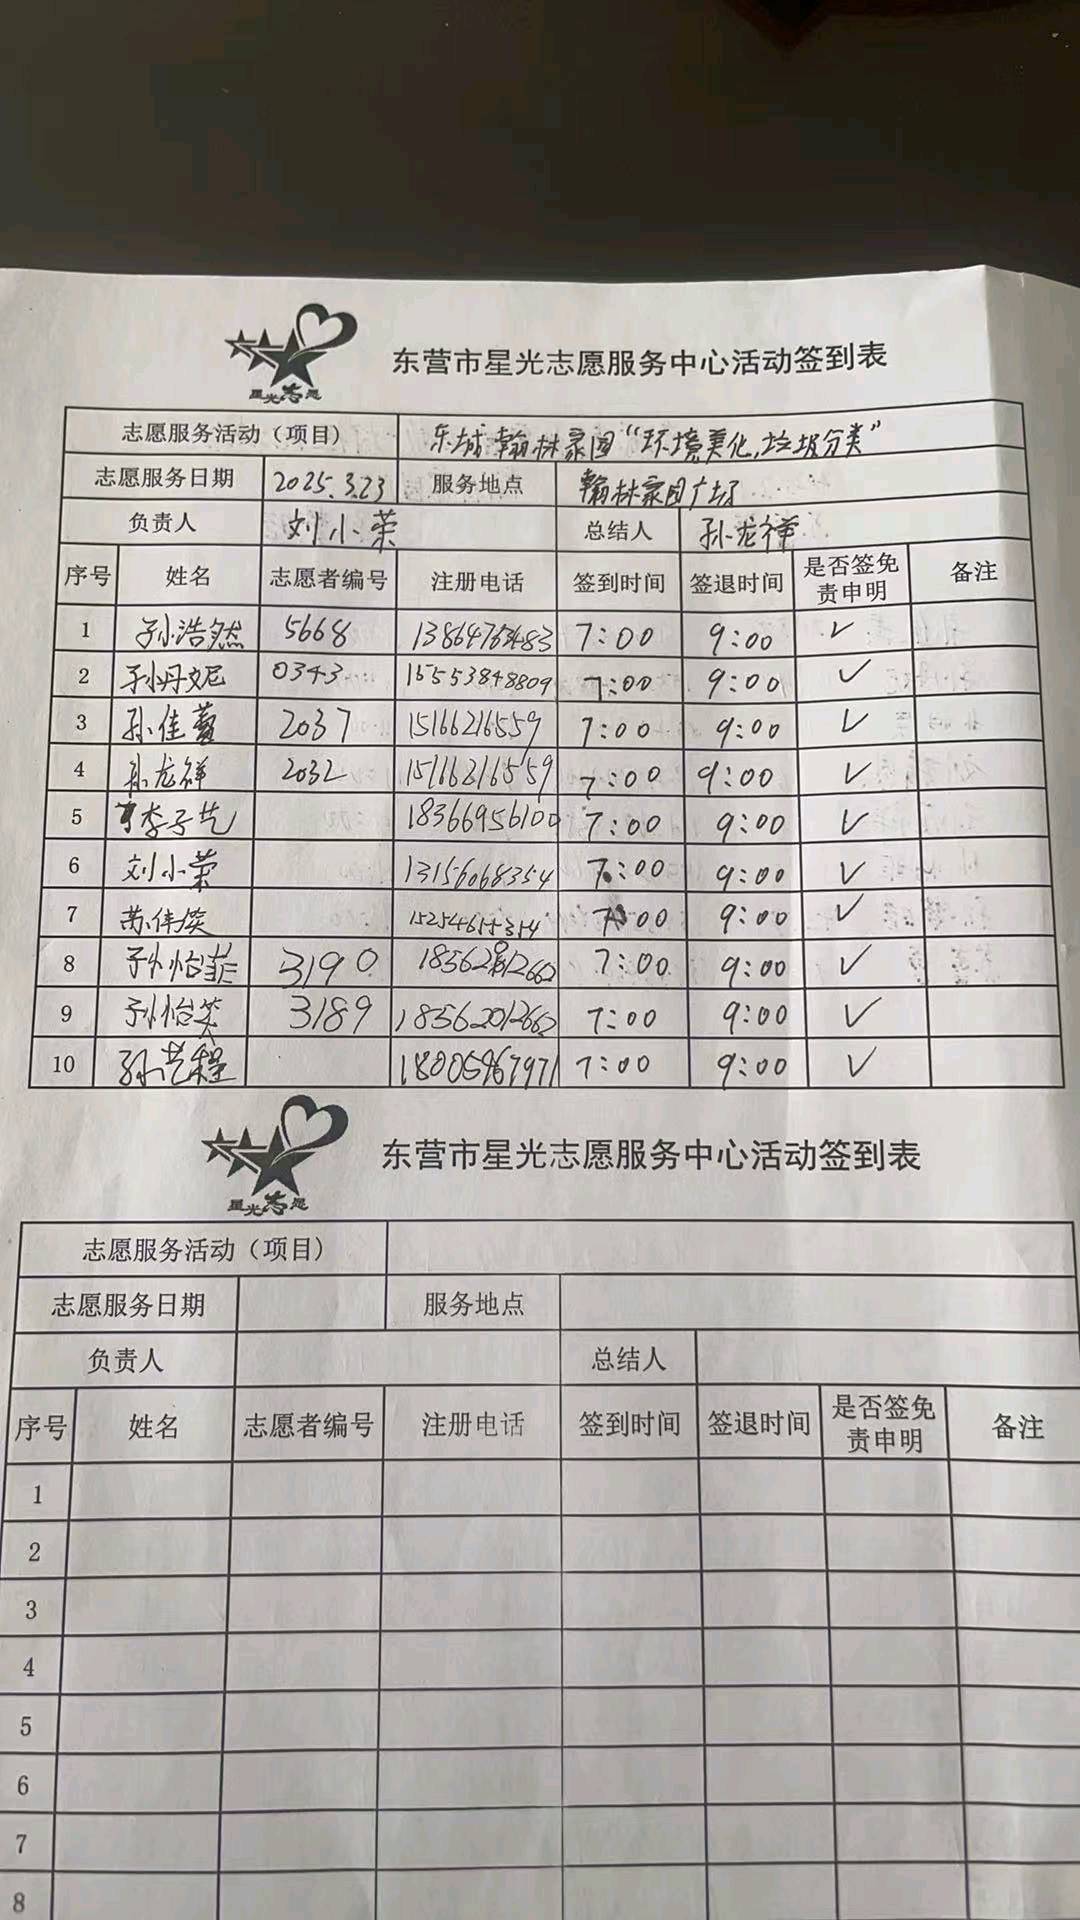 星光志愿
东营市星光志愿服务中心活动签到表
志愿服务活动（项目） 东城翰林家园“环境美化,垃圾分类”
志愿服务日期 2025.3.23 服务地点 翰林家园广场
负责人 刘小荣 总结人 孙龙祥
序号 姓名 志愿者编号 注册电话 签到时间 签退时间 是否签免责申明 备注
1 孙浩然 5668 13864763483 7:00 9:00 ✓
2 孙丹妮 0343 15553848809 7:00 9:00 ✓
3 孙佳蕾 2037 15166216559 7:00 9:00 ✓
4 孙龙祥 2032 15166216559 7:00 9:00 ✓
5 李子艺 18366956100 7:00 9:00 ✓
6 刘小荣 13156068354 7:00 9:00 ✓
7 苏伟俊 7:00 9:00 ✓
8 孙怡菲 3190 7:00 9:00 ✓
9 孙怡笑 3189 18562012662 7:00 9:00 ✓
10 孙艺程 18005467971 7:00 9:00 ✓
星光志愿
东营市星光志愿服务中心活动签到表
志愿服务活动（项目）
志愿服务日期 服务地点
负责人 总结人
序号 姓名 志愿者编号 注册电话 签到时间 签退时间 是否签免责申明 备注
1
2
3
4
5
6
7
8